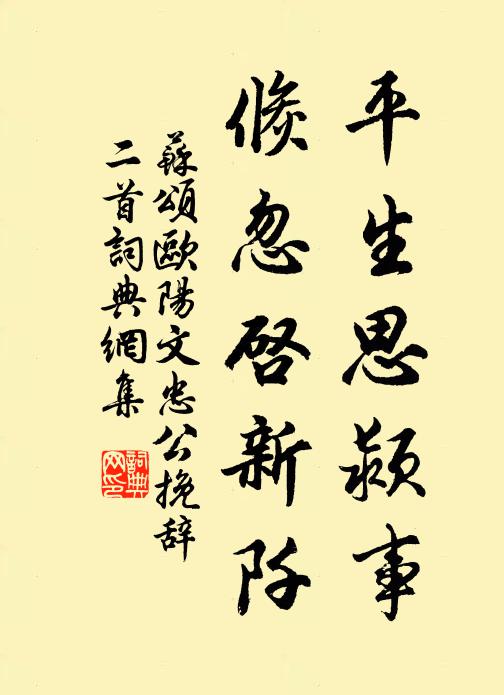 平生思颍事
倏忽启新阡
蘇頌歐陽文忠公挽辞
二首詞典網集
詞典網印